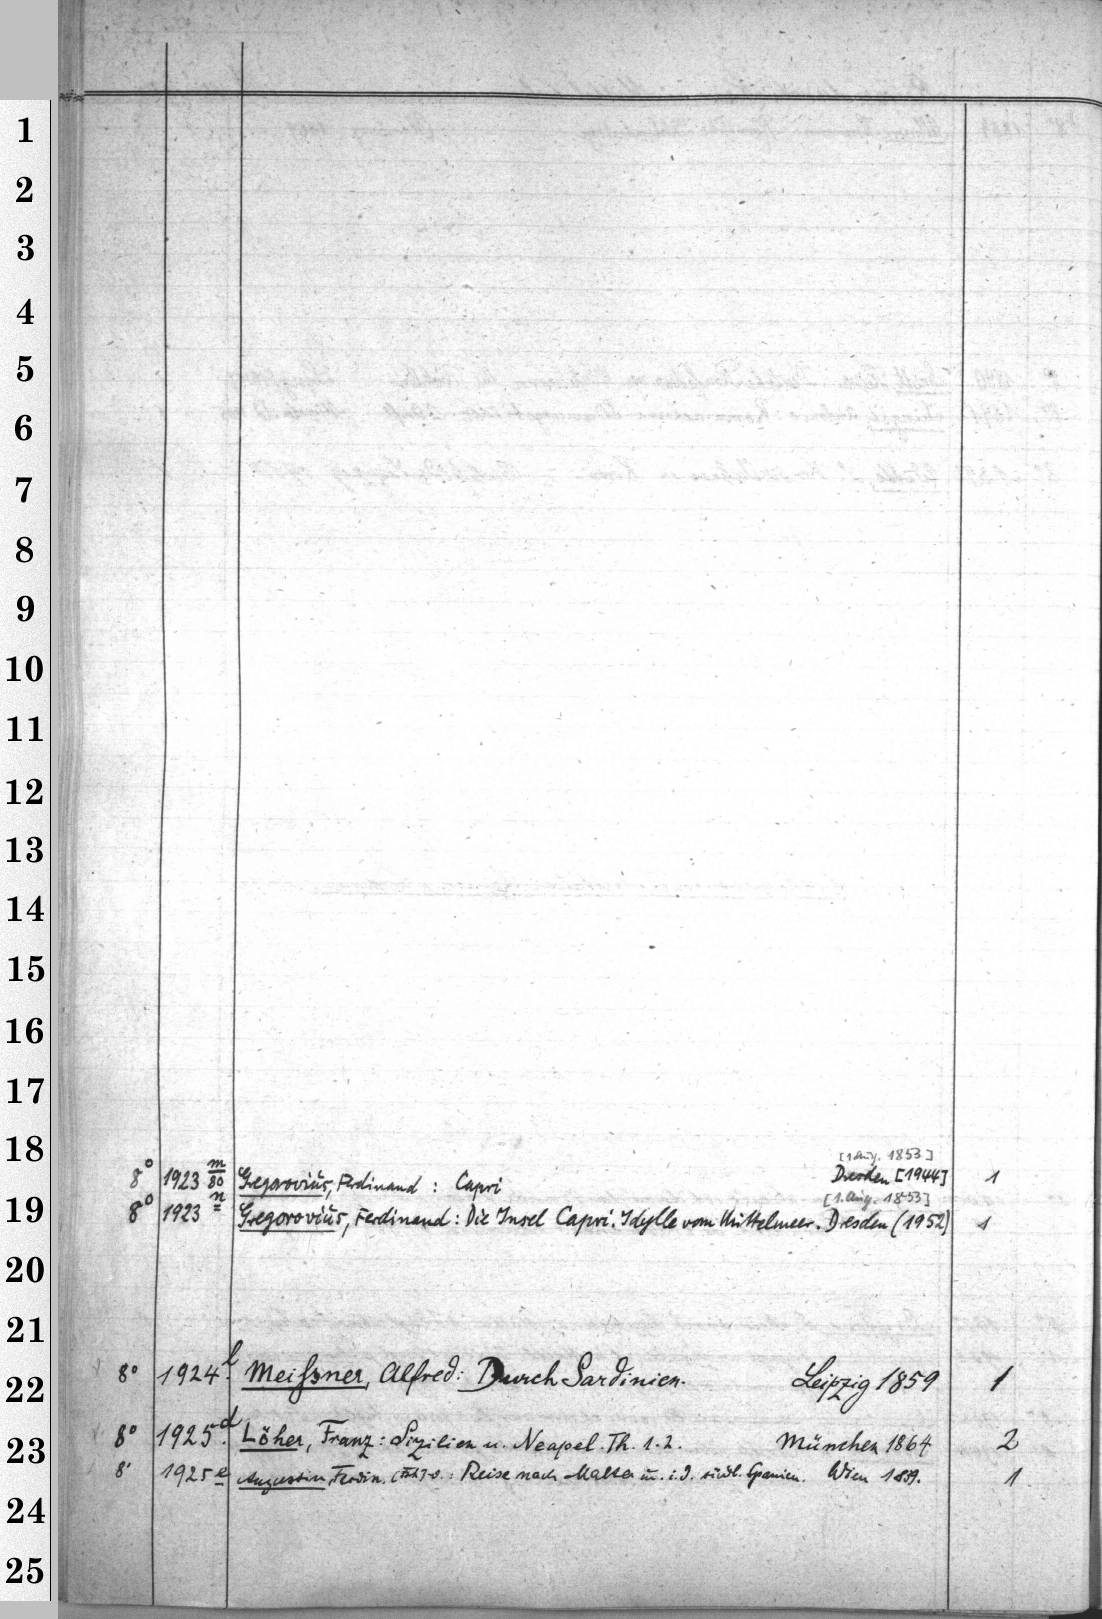 1
2
3
4
5
6
7
8
9
10
11
12
13
14
15
16
17
18
[1 Aug. 1853]
8° 1923 m/80 Gregorovius, Ferdinand : Capri Dresden [1944] 1
19
[1. Aug. 1853]
8° 1923 n Gregorovius, Ferdinand : Die Insel Capri. Idylle vom Mittelmeer. Dresden (1952) 1
20
21
22
8° 1924 l. Meißner, Alfred: Durch Sardinien. Leipzig 1859 1
23
8° 1925 d. Löher, Franz : Sizilien u. Neapel. Th. 1. 2. München 1864 2
8° 1925 e Augustin, Ferdin. : Reise nach Malta u. i. d. südl. Spanien. Wien 1839. 1
24
25